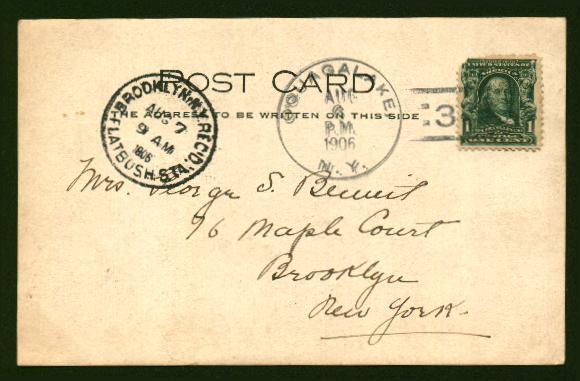 POST CARD
THE ADDRESS TO BE WRITTEN ON THIS SIDE
BROOKLYN, N.Y. REC'D.
AUG 7
9 AM
1906
FLATBUSH STA.
LAKE
AUG
6
P.M.
1906
N.Y.
3
1
ONE CENT
1
Mrs. George S.
76 Maple Court
Brooklyn
New York.